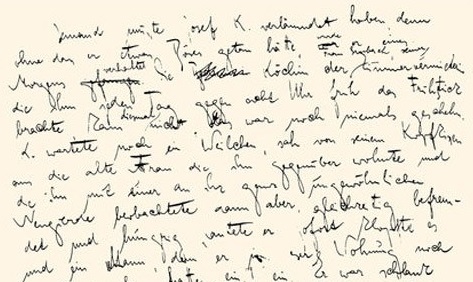 jemand musste Josef K. verläumdet haben denn
ohne dass er etwas Böses getan hätte, wurde er eines
Morgens verhaftet Die Köchin der Zimmervermieterin
die ihm jeden Tag gegen acht Uhr früh das Frühstück
brachte kam diesmal nicht Das war noch niemals geschehn.
K. wartete noch ein Weilchen, sah von seinem Kopfkissen
aus die alte Frau die ihm gegenüber wohnte und
die ihn mit einer an ihr ganz ungewöhnlichen
Neugierde beobachtete dann aber, gleichzeitig befrem-
det und hungrig, läutete er Sofort klopfte es
und ein Mann, den er in Wohnung noch
er war schlank